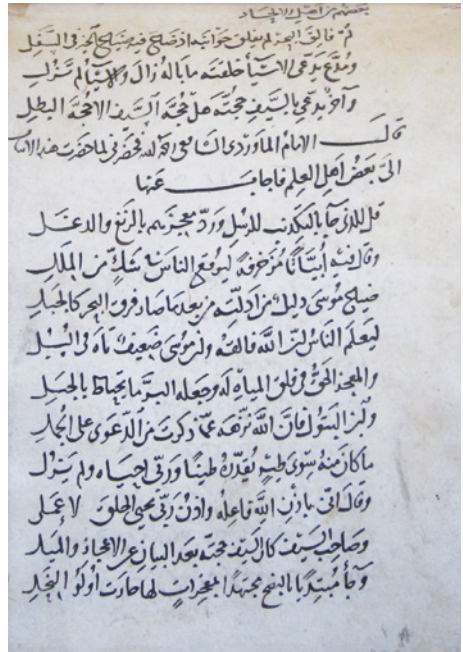 بعضهم من اهل الالحاد
ثم فالق البحر لم يفلق جوانبه اذ ضاع فيه ضياع الحبر في السفل
ومدع يدعي الاشيا خلقته ما باله زال والاشيا لم تزل
وآخر يدعي بالسيف حجته هل حجة السيف الا حجة البطل
قال الامام الماوردي الشافعي رحمه الله فحضرني لما حضرت هذه الابيات
الى بعض اهل العلم فاجاب عنها
قل للذي جا بالتكذيب للرسل ورد معجزهم بالزيغ والدغل
وقال فيه أبياتا مزخرفة ليوقع الناس في شك من الملل
ضياع موسى دليل من ادلته من بعد ما صار فرق البحر كالجبل
ليعلم الناس ان الله فالقه وان موسى ضعيف تاه في السبل
والمعجز الحق في فلق المياه له وجعله البر ما يحتاط بالحيل
وابن البتول فان الله نزهه عما ذكرت من الدعوى على الجمل
ما كان منه سوى طير يقدره طينا وربي احياه ولم يزل
وقال اني باذن الله فاعله واذن ربي يحيي الخلق لا عملي
وصاحب السيف كان السيف حجته بعد البيان عن الاعجاز والمثل
وجا مبتديا بالنصح مجتهدا بمعجزات لها حارت أولوا النحل